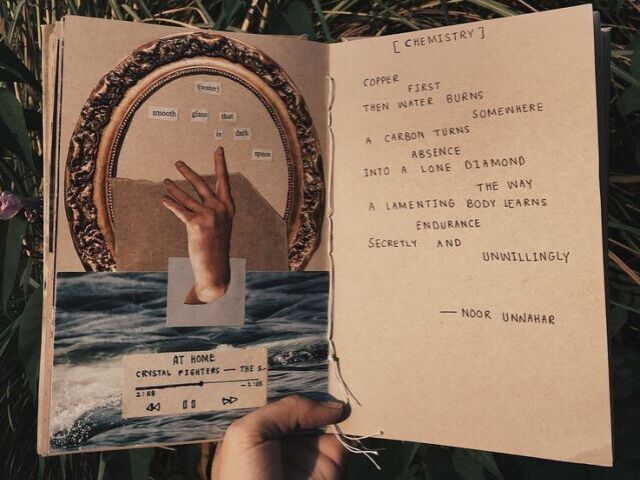 (water)
smooth glass that
is dark
space
AT HOME
CRYSTAL FIGHTERS — THE S..
2:58
-2:06
[ CHEMISTRY ]
COPPER
FIRST
THEN WATER BURNS
SOMEWHERE
A CARBON TURNS
ABSENCE
INTO A LONE DIAMOND
THE WAY
A LAMENTING BODY LEARNS
ENDURANCE
SECRETLY AND
UNWILLINGLY
— NOOR UNNAHAR